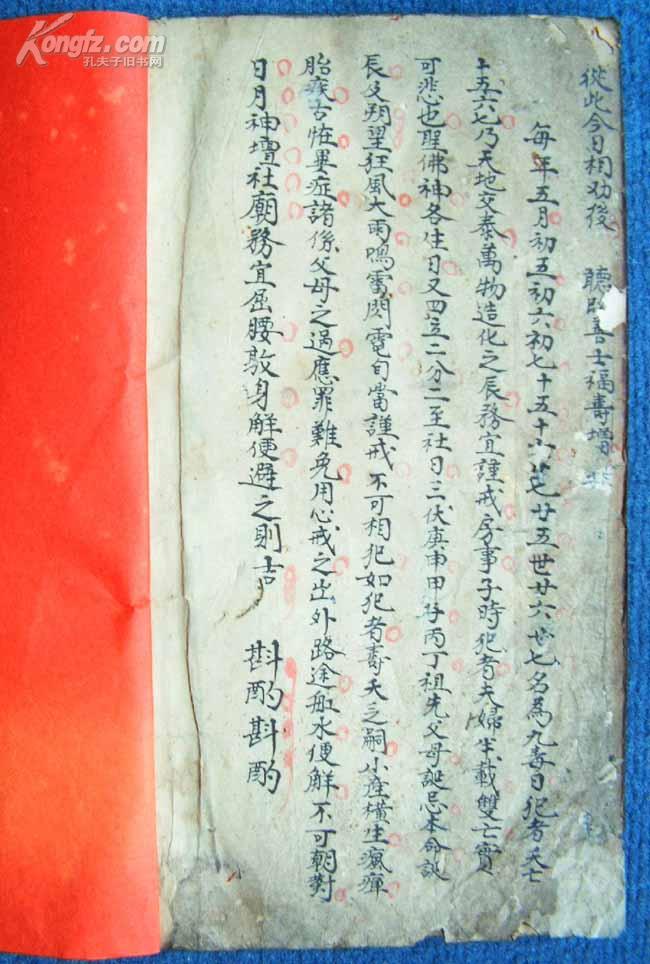 Kongfz.com
孔夫子旧书网
從此今日相劝後 聽 善士福壽增
每年五月初五初六初七十五十六 廿五 廿六 七名為九毒日犯者夭亡
十五六七乃天地交泰萬物造化之辰務宜謹戒房事子時犯者夫婦半載雙亡實
可悲也聖佛神各生日又四立二分二至社日三伏庚申甲子丙丁祖先父母誕忌本命誕
辰及朔望狂風大雨鳴雷閃電旬當謹戒不可相犯如犯者壽夭乏嗣小產橫生瘋癉
胎疾古怪異症諸係父母之過應罪難免用心戒之出外路途船水便解不可朝對
日月神壇社廟務宜屈腰敬身解便避之則吉 斟酌斟酌